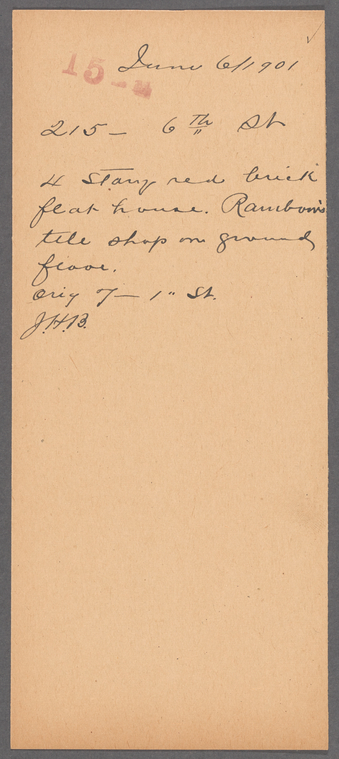 June 6/1901
215- 6th St
4 Story red brick
flat house. Rambow's
tile shop on ground
floor.
Orig 7- 1" St.
J.H.B.